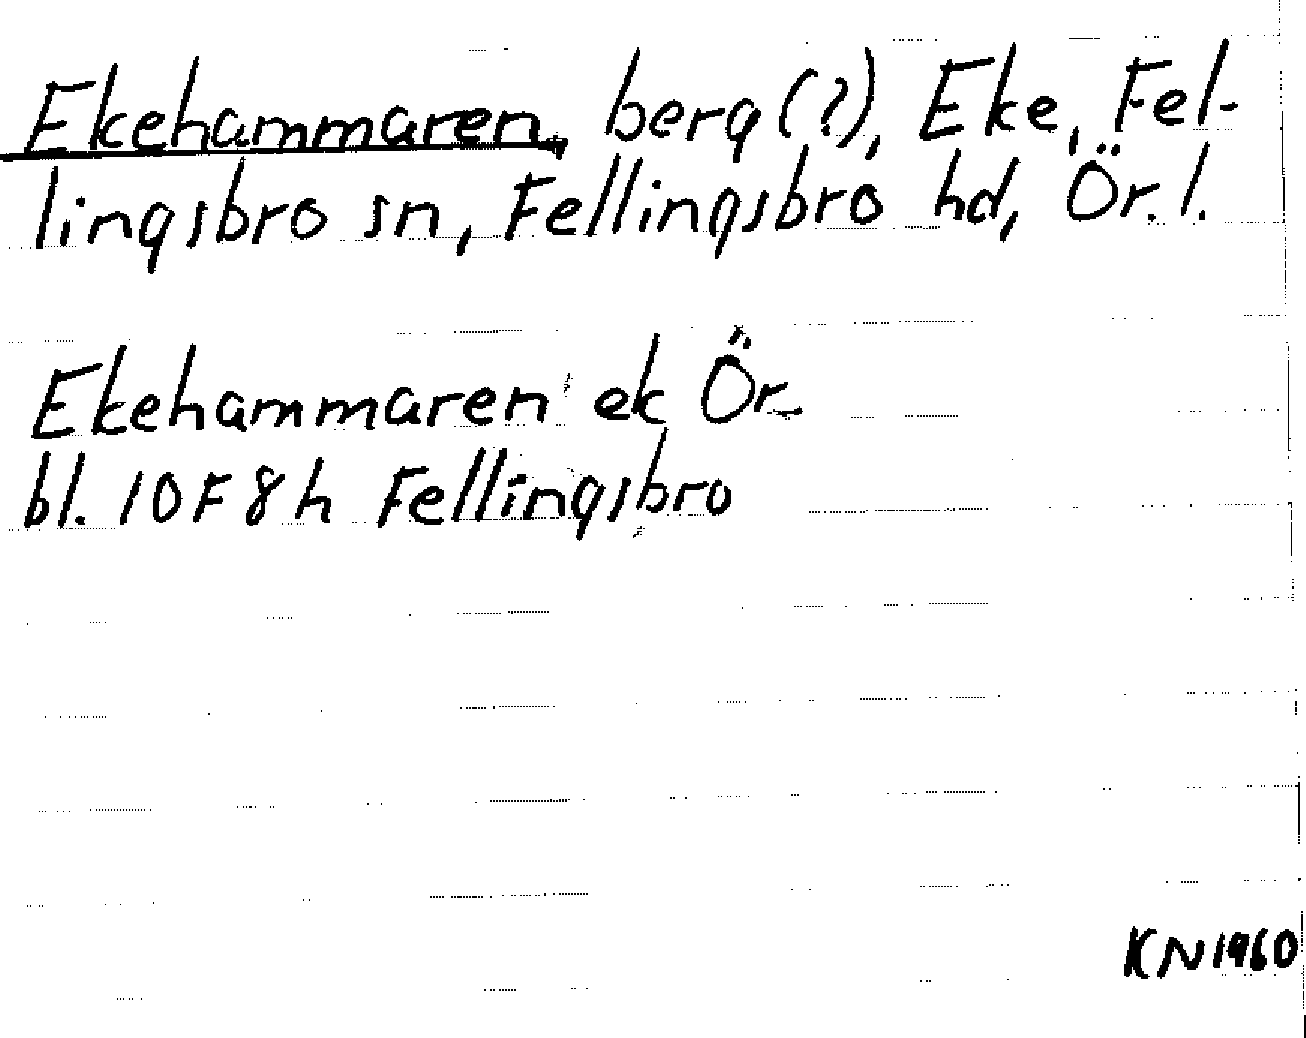 Ekehammaren, berg (?), Eke, Fel-
lingsbro sn, Fellingsbro hd, Ör. l.
Ekehammaren ek Ör.
bl. 10F8h Fellingsbro
KN1960